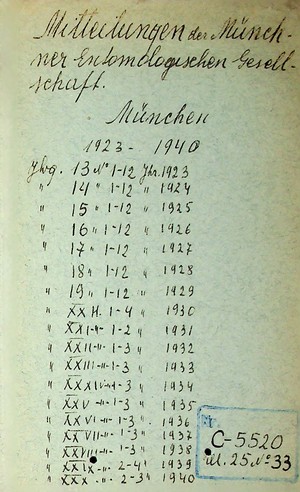 Mitteilungen der Münch-
ner Entomologischen Gesell-
schaft.
München
1923 - 1940
Jhrg. 13 № 1-12 Jhr. 1923
" 14 " 1-12 " 1924
" 15 " 1-12 " 1925
" 16 " 1-12 " 1926
" 17 " 1-12 " 1927
" 18 " 1-12 " 1928
" 19 " 1-12 " 1929
" XX H. 1-4 " 1930
" XXI -"- 1-2 " 1931
" XXII -"- 1-3 " 1932
" XXIII -"- 1-3 " 1933
" XXXIV -"- 1-3 " 1934
" XXV -"- 1-3 " 1935
" XXVI -"- 1-3 " 1936
" XXVII -"- 1-3 " 1937
" XXVIII -"- 1-3 " 1938
" XXIX -"- 2-4 " 1939
" XXX -"- 2-3 " 1940
C-5520
25 № 33